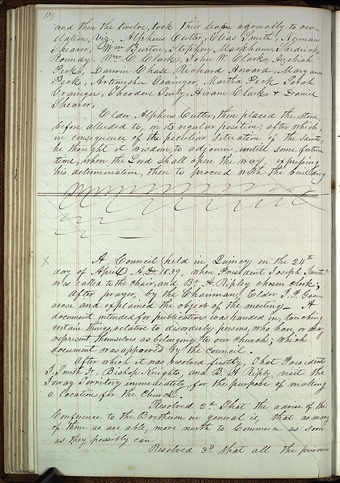 and then the twelve, took their leave agreeably to rev-
elation, viz. Alpheus Cutler, Elias Smith, Norman
Shearer, Wm Burton, Stephen Markham, Shadrick
Roundy, Wm O. Clark, John W. Clark, Hezekiah
Peck, Darwin Chase, Richard Howard, Mary Ann
Peck, Artimesia Grainger, Martha Peck, Sarah
Grainger, Theodore Turly, Hiram Clark & Daniel
Shearer,
Elder Alpheus Cutler, then placed the stone
before alluded to, in its regular position; after which,
in consequence of the peculiar situation of the Saints,
he thought it wisdom to adjourn, until some future
time, when the Lord shall open the way, expressing
his determination, then to proceed with the building
A Council held in Quincy on the 24th
day of April A.D. 1839, when President Joseph Smith Jr
was called to the chair, and Br A. Ripley chosen clerk;
After prayer, by the Chairman, Elder J. P. Green
arose and explained the object of the meeting. A
document intended for publication was handed in, touching
certain things relative to disorderly persons, who have or may
represent themselves as belonging to our church; which
document was approved by the council.
After which it was Resolved firstly, That President
J. Smith Jr, Bishop Knights, and B. A. Ripley, visit the
Ioway Territory immediately, for the purpose of making
a location for the Church.
Resolved 2nd That the advice of the
Conference to the Brethren in general is that as many
of them as are able, move north to Commerce as soon
as they possibly can
Resolved 3d that all the prisoners